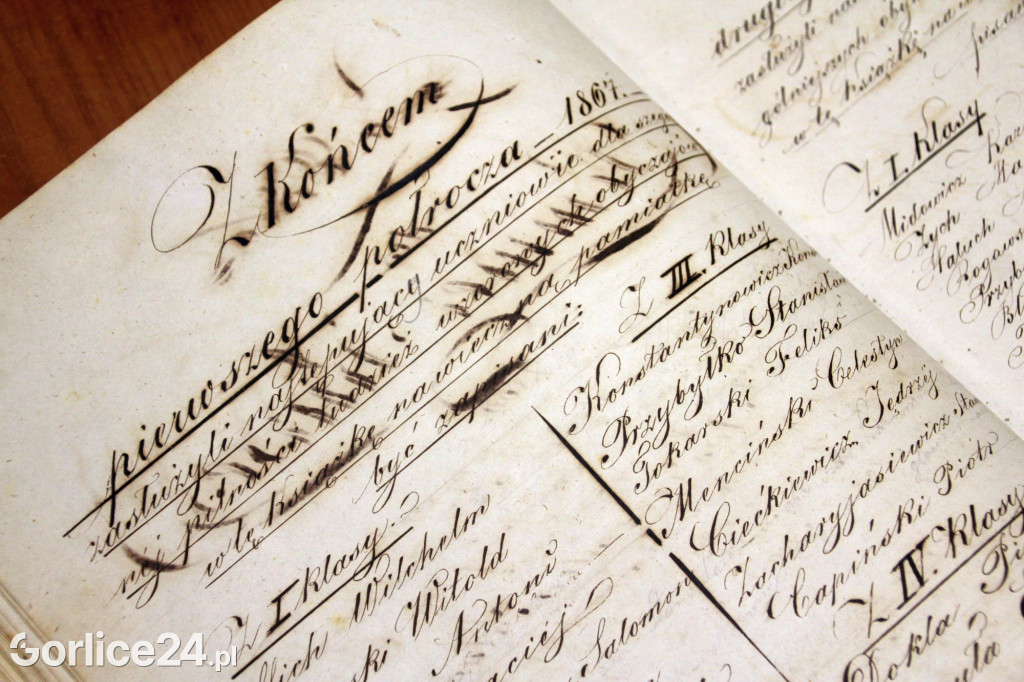 Z Końcem
pierwszego półrocza 1867.
zasłużyli następujący uczniowie dla szcze
nej pilności tudzież wzorowych obyczajów
w tę książkę na wieczną pamiątkę
być zapisani:
Z I klasy:
lich Wilchelm
ski Witold
Antoni
Maciej
Salomon
Z III. klasy
Konstantynowicz Kon
Przybyłko Stanisław
Tokarski Feliks
Menciński Celestyn
Ciećkiewicz Jędrzy
Zacharyjasiewicz Sta
Capiński Piotr
Z IV klasy
Dokla Pi
drugi
zasłużyli na
gólniejszych oby
w tę książkę na w
pisan
Z I. Klasy
Midowicz Kaz
Zych Ma
Hałuch
Rogaws
Przyb
Bl
Gorlice24.pl